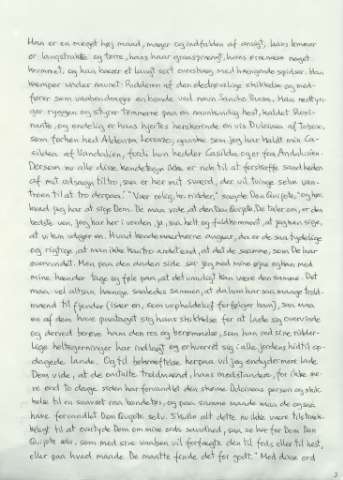 Han er en meget høj mand, mager og indfalden af ansigt, hans lemmer
er langstrakte og tørre, hans haar graasprængt, hans ørnenæse noget
krummet, og han bærer et langt sort overskæg med hængende spidser. Han
kæmper under navnet Ridderen af den bedrøvelige skikkelse og med-
fører som vaabendrager en bonde ved navn Sancho Panza. Han nedtyn-
ger ryggen og styrer tømmerne paa en navnkundig hest, kaldet Rosi-
nante, og endelig er hans hjertes herskerinde en vis Dulcinea af Toboso,
som forhen hed Aldonza Lorenzo, ganske som jeg har kaldt min Ca-
sildea af Vandalien, fordi hun hedder Casilda og er fra Andalusien.
Dersom nu alle disse kendetegn ikke er nok til at forskaffe sandheden
af mit udsagn tiltro, saa er her mit sværd, der vil tvinge selve van-
troen til at tro derpaa." "Vær rolig, hr. ridder," sagde Don Quijote, "og hør,
hvad jeg har at sige Dem. De maa vide, at den Don Quijote, De taler om, er den
bedste ven, jeg har her i verden, ja, saa helt og fuldkomment, at jeg kan sige,
at vi kun udgør en. Hvad kendemærkerne angaar, da er de saa tydelige
og rigtige, at man ikke kan tro andet end, at det er den samme, som De har
overvundet. Men paa den anden side ser jeg med mine øjne og kan med
mine hænder tage og føle paa, at det umuligt kan være den samme. Det
maa vel altsaa hænge saaledes sammen, at da han har saa mange trold-
mænd til fjender (især en, som uophørlig forfølger ham), saa maa
en af dem have paataget sig hans skikkelse for at lade sig overvinde
og derved berøve ham den ros og berømmelse, som han ved sine ridder-
lige heltegerninger har indlagt og erhvervet sig i alle jordens hidtil op-
dagede lande. Og til bekræftelse herpaa vil jeg endydermere lade
Dem vide, at de omtalte troldmænd, hans modstandere, for ikke me-
re end to dage siden har forvandlet den skønne Dulcineas person og skik-
kelse til en saare raa bondetøs, og paa samme maade maa de ogsaa
have forvandlet Don Quijote selv. Skulde alt dette nu ikke være tilstræk-
keligt til at overtyde Dem om mine ords sandhed, saa se her for Dem Don
Quijote selv, som med sine vaaben vil forfægte den til fods eller til hest,
eller paa hvad maade De maatte finde det for godt." Med disse ord